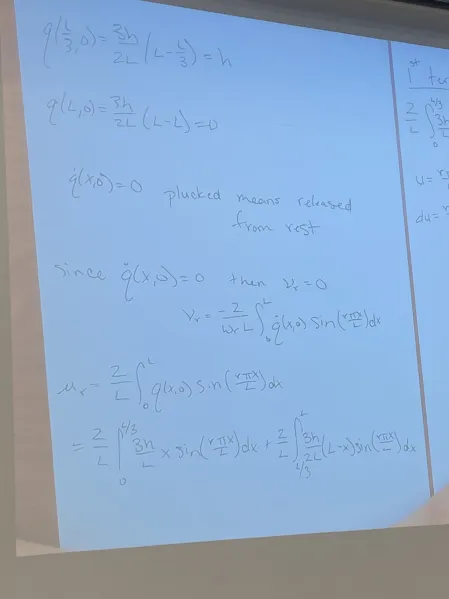 q(L/3,0)=3h/2L(L-L/3)=h
q(L,0)=3h/2L(L-L)=0
q̇(x,0)=0 plucked means released
from rest
since q̇(x,0)=0 then νr=0
νr=-2/ωrL ∫₀ᴸ q̇(x,0) sin(rπx/L)dx
μr=2/L ∫₀ᴸ q(x,0) sin(rπx/L)dx
=2/L ∫₀^L/3 3h/L x sin(rπx/L)dx+2/L ∫_L/3^L 3h/2L(L-x)sin(rπx/L)dx
1st
2/L ∫₀^L/3 3h
u=
du=